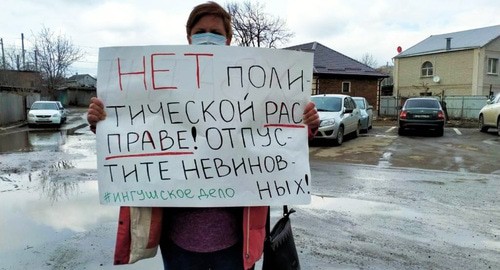 НЕТ ПОЛИ-
ТИЧЕСКОЙ РАС
ПРАВЕ! ОТПУС-
ТИТЕ НЕВИНОВ-
#ИНГУШСКОЕ ДЕЛО НЫХ!